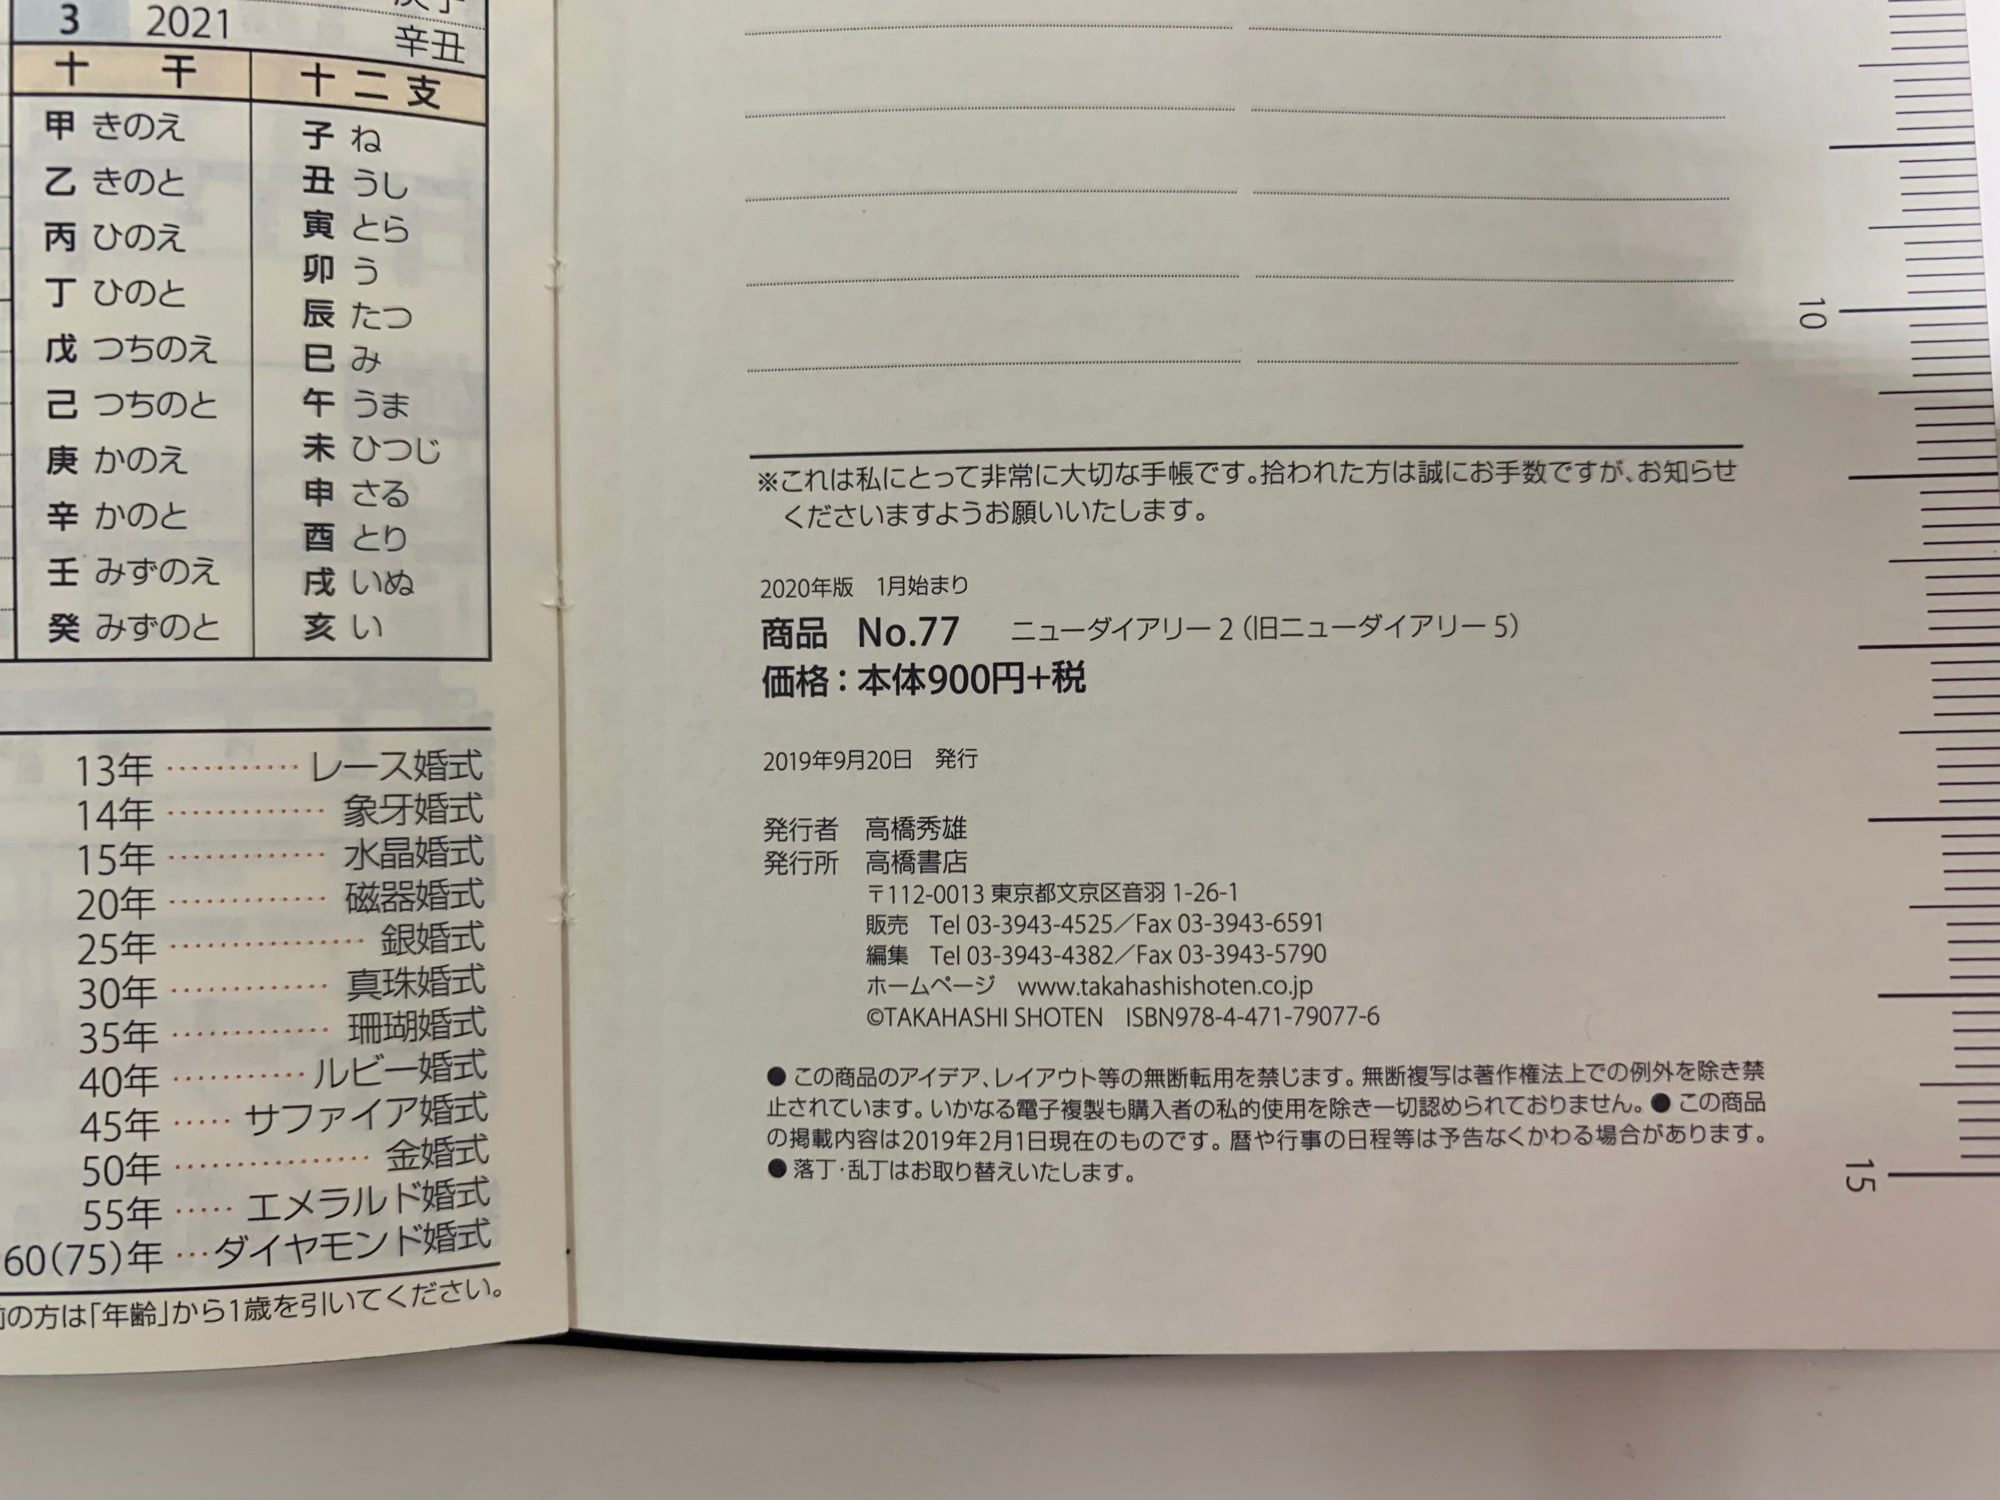 3 2021 辛丑
十干 十二支
甲 きのえ
乙 きのと
丙 ひのえ
丁 ひのと
戊 つちのえ
己 つちのと
庚 かのえ
辛 かのと
壬 みずのえ
癸 みずのと
子 ね
丑 うし
寅 とら
卯 う
辰 たつ
巳 み
午 うま
未 ひつじ
申 さる
酉 とり
戌 いぬ
亥 い
13年 ··········· レース婚式
14年 ············· 象牙婚式
15年 ············· 水晶婚式
20年 ············· 磁器婚式
25年 ················ 銀婚式
30年 ············· 真珠婚式
35年 ············· 珊瑚婚式
40年 ··········· ルビー婚式
45年 ····· サファイア婚式
50年 ················ 金婚式
55年 ····· エメラルド婚式
60(75)年 ··· ダイヤモンド婚式
の方は「年齢」から1歳を引いてください。
10
15
※これは私にとって非常に大切な手帳です。拾われた方は誠にお手数ですが、お知らせ
くださいますようお願いいたします。
2020年版 1月始まり
商品 No.77 ニューダイアリー 2 (旧ニューダイアリー 5)
価格:本体900円+税
2019年9月20日 発行
発行者 高橋秀雄
発行所 高橋書店
〒112-0013 東京都文京区音羽 1-26-1
販売 Tel 03-3943-4525/Fax 03-3943-6591
編集 Tel 03-3943-4382/Fax 03-3943-5790
ホームページ www.takahashishoten.co.jp
©TAKAHASHI SHOTEN ISBN978-4-471-79077-6
● この商品のアイデア、レイアウト等の無断転用を禁じます。無断複写は著作権法上での例外を除き禁
止されています。いかなる電子複製も購入者の私的使用を除き一切認められておりません。● この商品
の掲載内容は2019年2月1日現在のものです。暦や行事の日程等は予告なくかわる場合があります。
● 落丁・乱丁はお取り替えいたします。